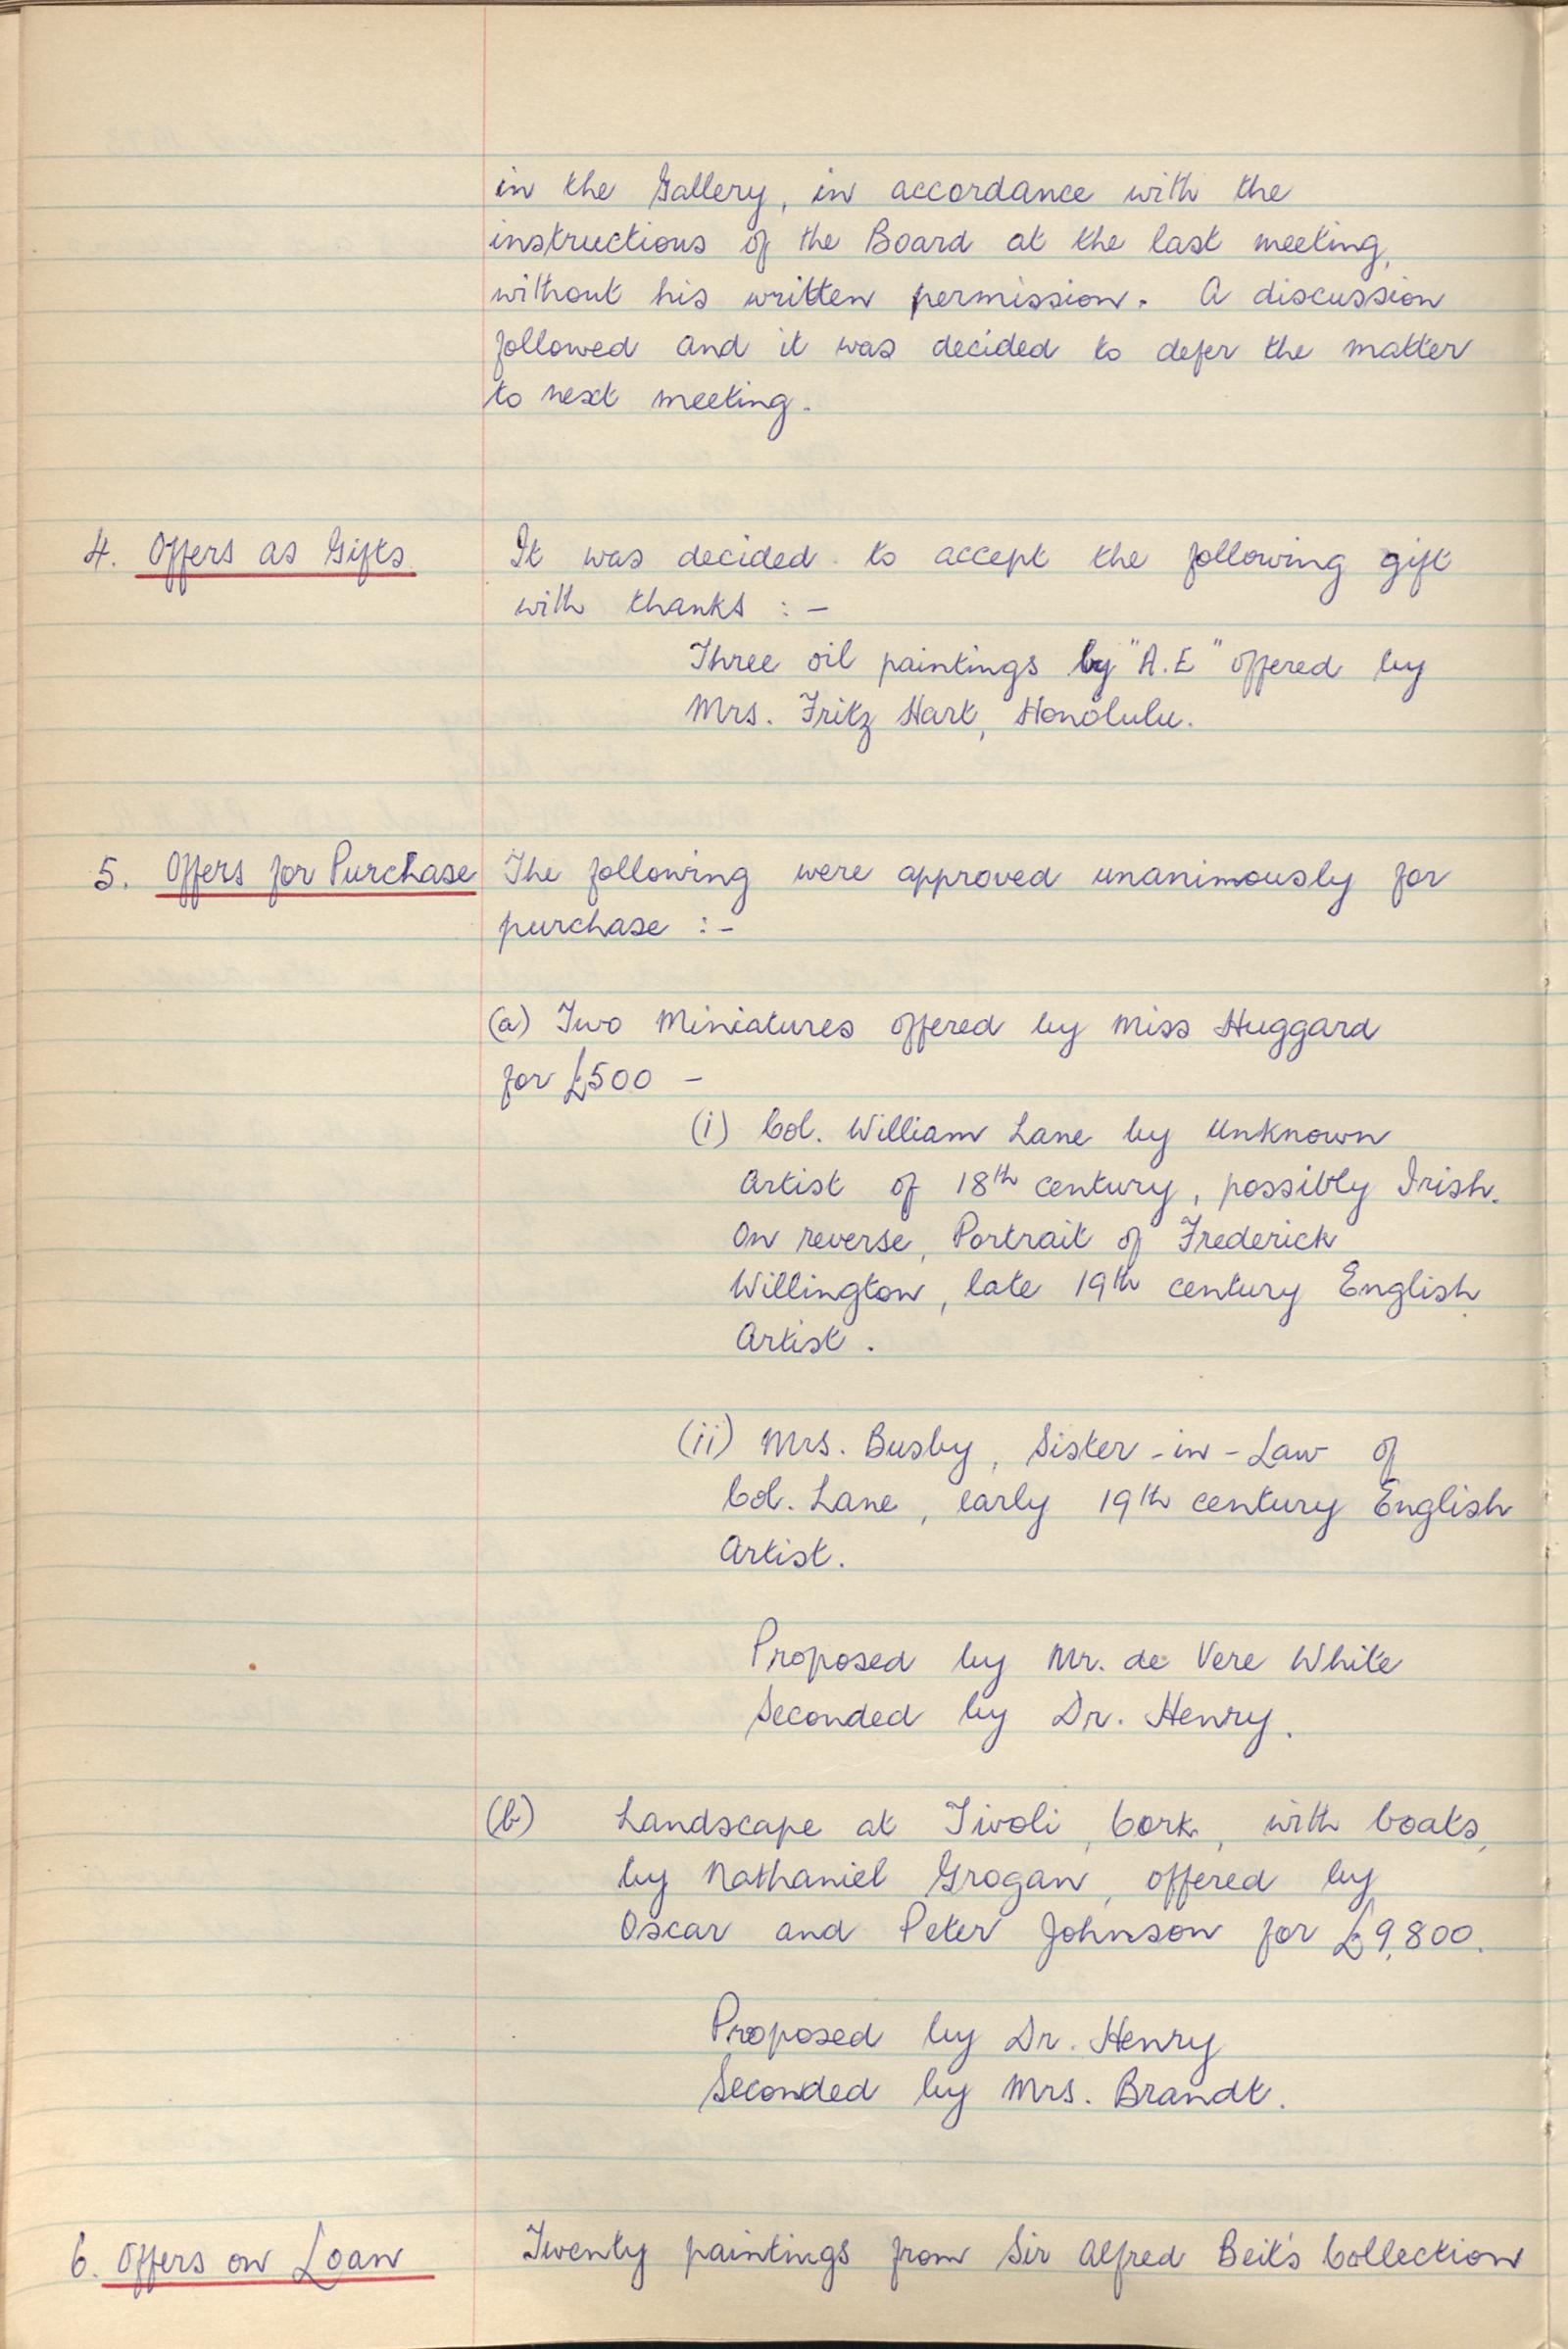 in the Gallery, in accordance with the
instructions of the Board at the last meeting,
without his written permission. A discussion
followed and it was decided to defer the matter
to next meeting.
4. Offers as Gifts.
It was decided to accept the following gift
with thanks :-
Three oil paintings by "A.E" offered by
Mrs. Fritz Hart, Honolulu.
5. Offers for Purchase
The following were approved unanimously for
purchase :-
(a) Two Miniatures offered by Miss Huggard
for £500 -
(i) Col. William Lane by Unknown
Artist of 18th century, possibly Irish.
On reverse, Portrait of Frederick
Willington, late 19th century English
Artist.
(ii) Mrs. Busby, Sister-in-Law of
Col. Lane, early 19th century English
Artist.
Proposed by Mr. de Vere White
Seconded by Dr. Henry.
(b) Landscape at Tivoli, Cork, with boats,
by Nathaniel Grogan, offered by
Oscar and Peter Johnson for £9,800.
Proposed by Dr. Henry
Seconded by Mrs. Brandt.
6. Offers on Loan
Twenty paintings from Sir Alfred Beit's Collection